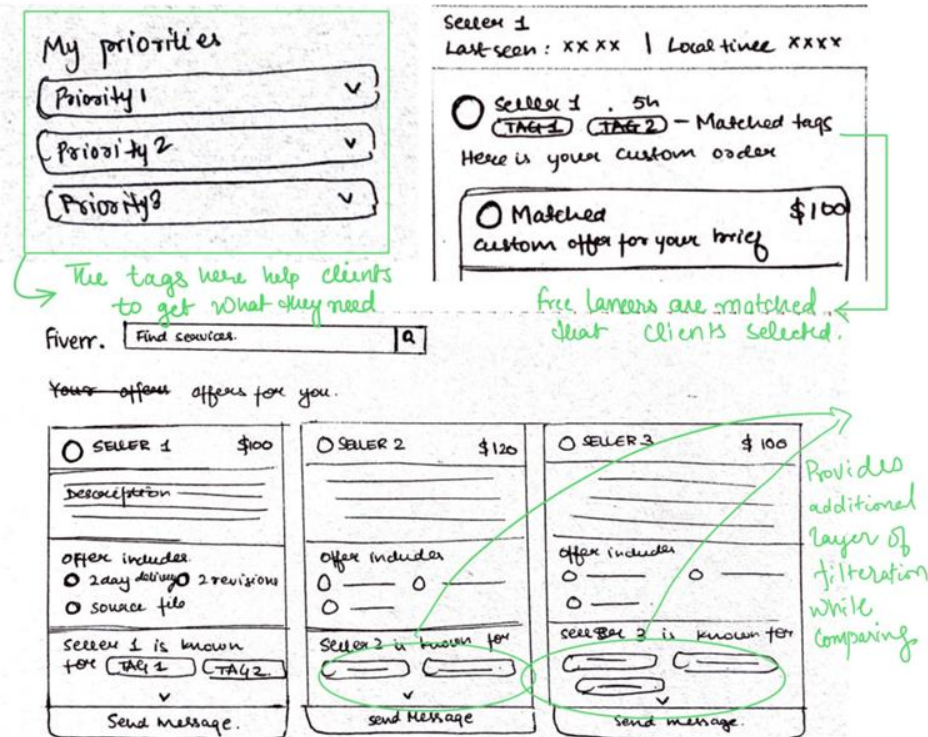 My priorities
Priority 1
Priority 2
Priority 3
The tags here help clients
to get what they need
Seller 1
Last seen : xx xx | Local time xxxx
Seller 1 . 5h
TAG 1 TAG 2 - Matched tags
Here is your custom order
Matched $100
custom offer for your brief
free lancers are matched
that clients selected.
Fiverr. Find services.
Your offers offers for you.
SELLER 1 $100
Description
offer includes
2 day delivery 2 revisions
source file
Seller 1 is known
for TAG 1 TAG 2
Send message.
SELLER 2 $120
offer includes
Seller 2 is known for
Send Message
SELLER 3 $100
offer includes
seller 3 is known for
Send message.
Provides
additional
layer of
filteration
while
comparing